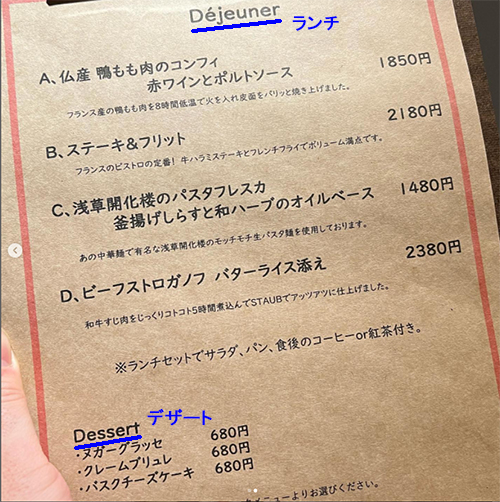 Déjeuner ランチ
A、仏産 鴨もも肉のコンフィ 1850円
赤ワインとポルトソース
フランス産の鴨もも肉を8時間低温で火を入れ皮面をパリッと焼き上げました。
B、ステーキ&フリット 2180円
フランスのビストロの定番！牛ハラミステーキとフレンチフライでボリューム満点です。
C、浅草開化楼のパスタフレスカ 1480円
釜揚げしらすと和ハーブのオイルベース
あの中華麺で有名な浅草開化楼のモッチモチ生パスタ麺を使用しております。
D、ビーフストロガノフ バターライス添え 2380円
和牛すじ肉をじっくりコトコト5時間煮込んでSTAUBでアッツアツに仕上げました。
※ランチセットでサラダ、パン、食後のコーヒーor紅茶付き。
Dessert デザート
・ヌガーグラッセ 680円
・クレームブリュレ 680円
・バスクチーズケーキ 680円
メニューよりお選びください。